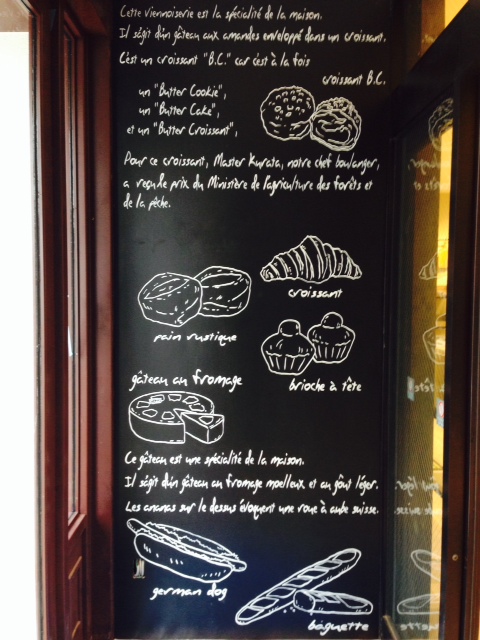 Cette viennoiserie est la spécialité de la maison.
Il s'agit d'un gâteau aux amandes enveloppé dans un croissant.
C'est un croissant "B.C." car c'est à la fois
croissant B.C.
un "Butter Cookie",
un "Butter Cake",
et un "Butter Croissant",
Pour ce croissant, Master Kurata, notre chef boulanger,
a reçu le prix du Ministère de l'agriculture des forêts et
de la pêche.
croissant
pain rustique
brioche à tête
gâteau au fromage
Ce gâteau est une spécialité de la maison.
Il s'agit d'un gâteau au fromage moelleux et au goût léger.
Les ananas sur le dessus évoquent une roue à aube suisse.
german dog
baguette